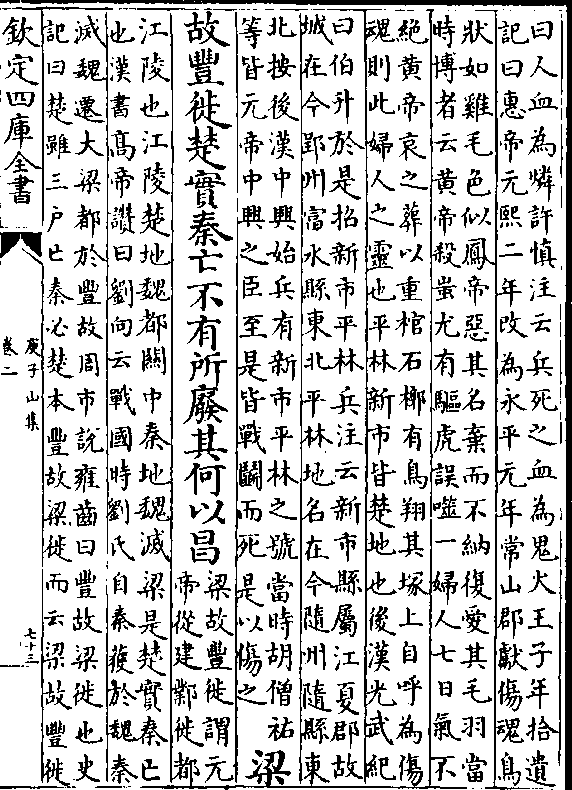 曰人血為燐許慎注云兵死之血為鬼火王子年拾遺
記曰惠帝元熙二年改為永平元年常山郡獻傷魂鳥
狀如雞毛色似鳳帝惡其名棄而不納復愛其毛羽當
時博者云黃帝殺蚩尤有驅虎誤噬一婦人七日氣不
絕黃帝哀之葬以重棺石槨有鳥翔其塚上自呼為傷
魂則此婦人之靈也平林新市皆楚地也後漢光武紀
曰伯升於是招新市平林兵注云新市縣屬江夏郡故
城在今郢州富水縣東北平林地名在今隨州隨縣東
北按後漢中興始兵有新市平林之號當時胡僧祐
等皆元帝中興之臣至是皆戰鬭而死是以傷之
梁
故豐徙楚實秦亡不有所廢其何以昌
梁故豐徙謂元
帝從建鄴徙都
江陵也江陵楚地魏都關中秦地魏滅梁是楚實秦亡
也漢書髙帝讚曰劉向云戰國時劉氏自秦獲於魏秦
滅魏遷大梁都於豐故周市說雍齒曰豐故梁徙也史
記曰楚雖三戶亡秦必楚本豐故梁徙而云梁故豐徙
欽定四庫全書
庾子山集
卷二
七十三